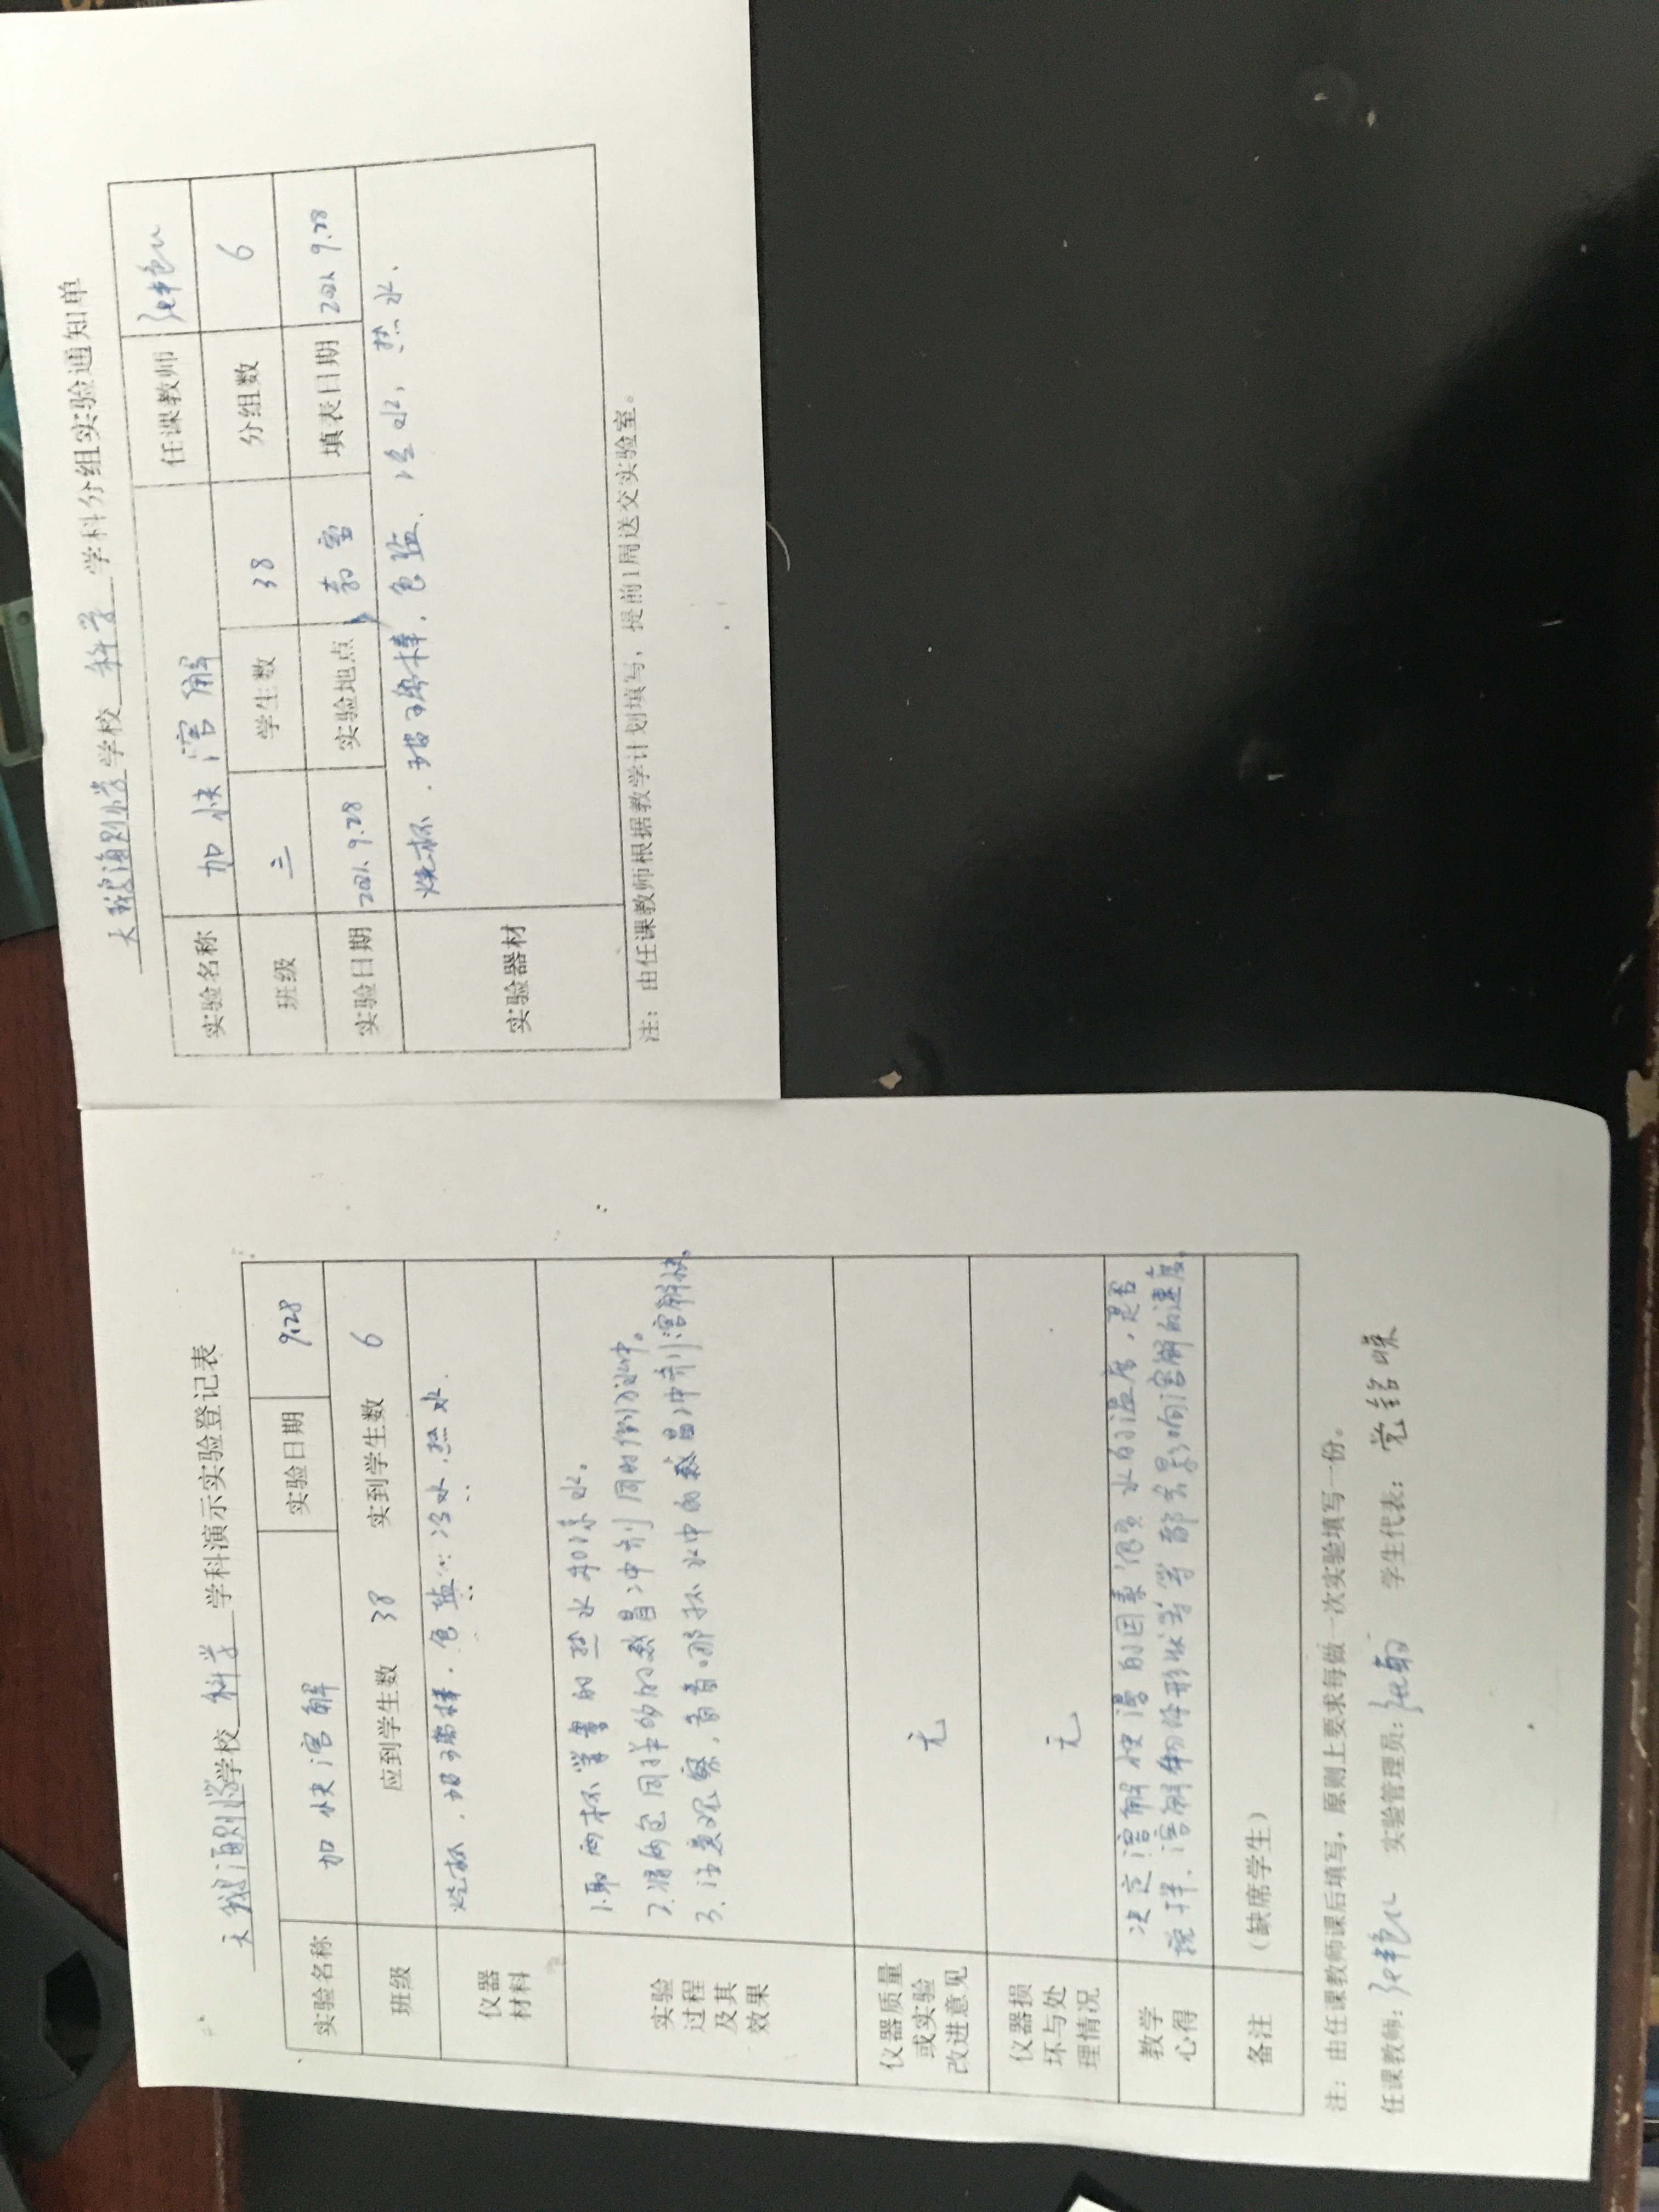 学校 科学 学科分组实验通知单
实验名称 加快溶解 任课教师
班级 三 学生数 38 分组数 6
实验日期 2021.9.28 实验地点 教室 填表日期 2021.9.28
实验器材 烧杯、玻璃棒、食盐、冷水、热水、
注：由任课教师根据教学计划填写，提前1周送交实验室。
学校 科学 学科演示实验登记表
实验名称 加快溶解 实验日期 9.28
班级 应到学生数 38 实到学生数 6
仪器
材料
烧杯、玻璃棒、食盐、冷水、热水.
实验
过程
及其
效果
1.取两杯等量的热水和凉水。
2.将两包同样多的感冒冲剂同时倒入水中。
3.注意观察，看看哪杯水中的感冒冲剂溶解快。
仪器质量
或实验
改进意见
无
仪器损
坏与处
理情况
无
教学
心得
决定溶解快慢的因素很多水的温度，是否
搅拌、溶解物体形状等等都会影响溶解的速度。
备注 （缺席学生）
注：由任课教师课后填写，原则上要求每做一次实验填写一份。
任课教师： 实验管理员： 学生代表：